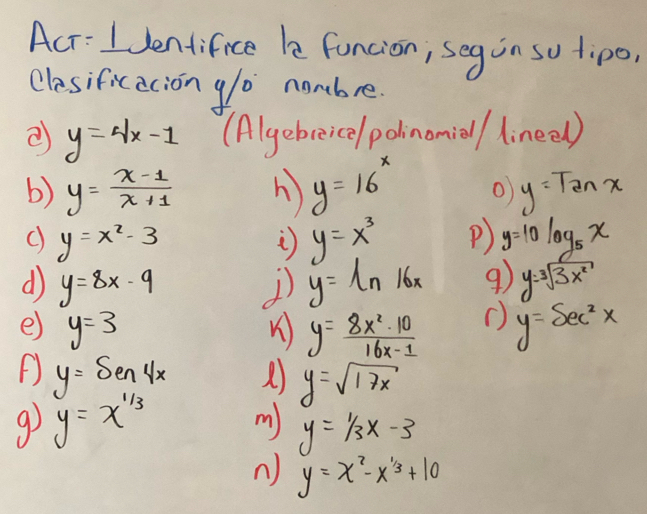 Act = Identifica la función, según su tipo,
Clasificación y/o nombre.
a) y = 4x - 1 (Algebraica/polinomial/lineal)
b) y = x - 1 / x + 1
c) y = x² - 3
d) y = 8x - 9
e) y = 3
f) y = Sen 4x
g) y = x^1/3
h) y = 16^x
i) y = x³
j) y = ln 16x
k) y = 8x² - 10 / 16x - 1
l) y = √17x
m) y = 1/3x - 3
n) y = x² - x^1/3 + 10
o) y = Tan x
p) y = 10 log₅ x
q) y = ³√3x²
r) y = Sec² x